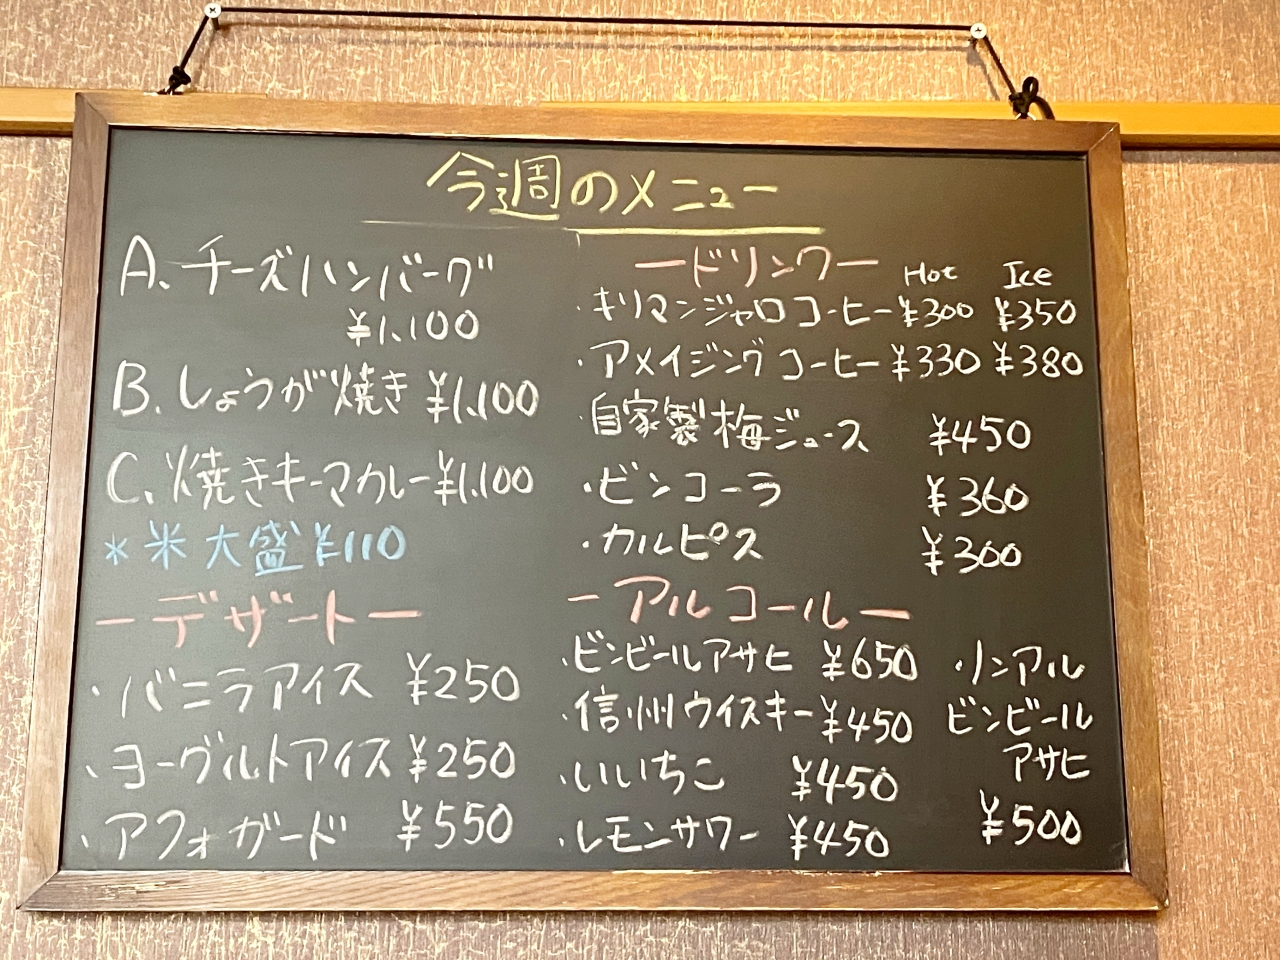 今週のメニュー
A. チーズハンバーグ
¥1,100
B. しょうが焼き ¥1,100
C. 焼きキーマカレー ¥1,100
* 米 大盛 ¥110
ーデザートー
・バニラアイス ¥250
、ヨーグルトアイス ¥250
・アフォガード ¥550
ードリンクー Hot Ice
・キリマンジャロコーヒー ¥300 ¥350
・アメイジングコーヒー ¥330 ¥380
・自家製梅ジュース ¥450
・ビンコーラ ¥360
・カルピス ¥300
ーアルコールー
・ビンビールアサヒ ¥650
・信州ウイスキー ¥450
・いいちこ ¥450
・レモンサワー ¥450
・ノンアル
ビンビール
アサヒ
¥500